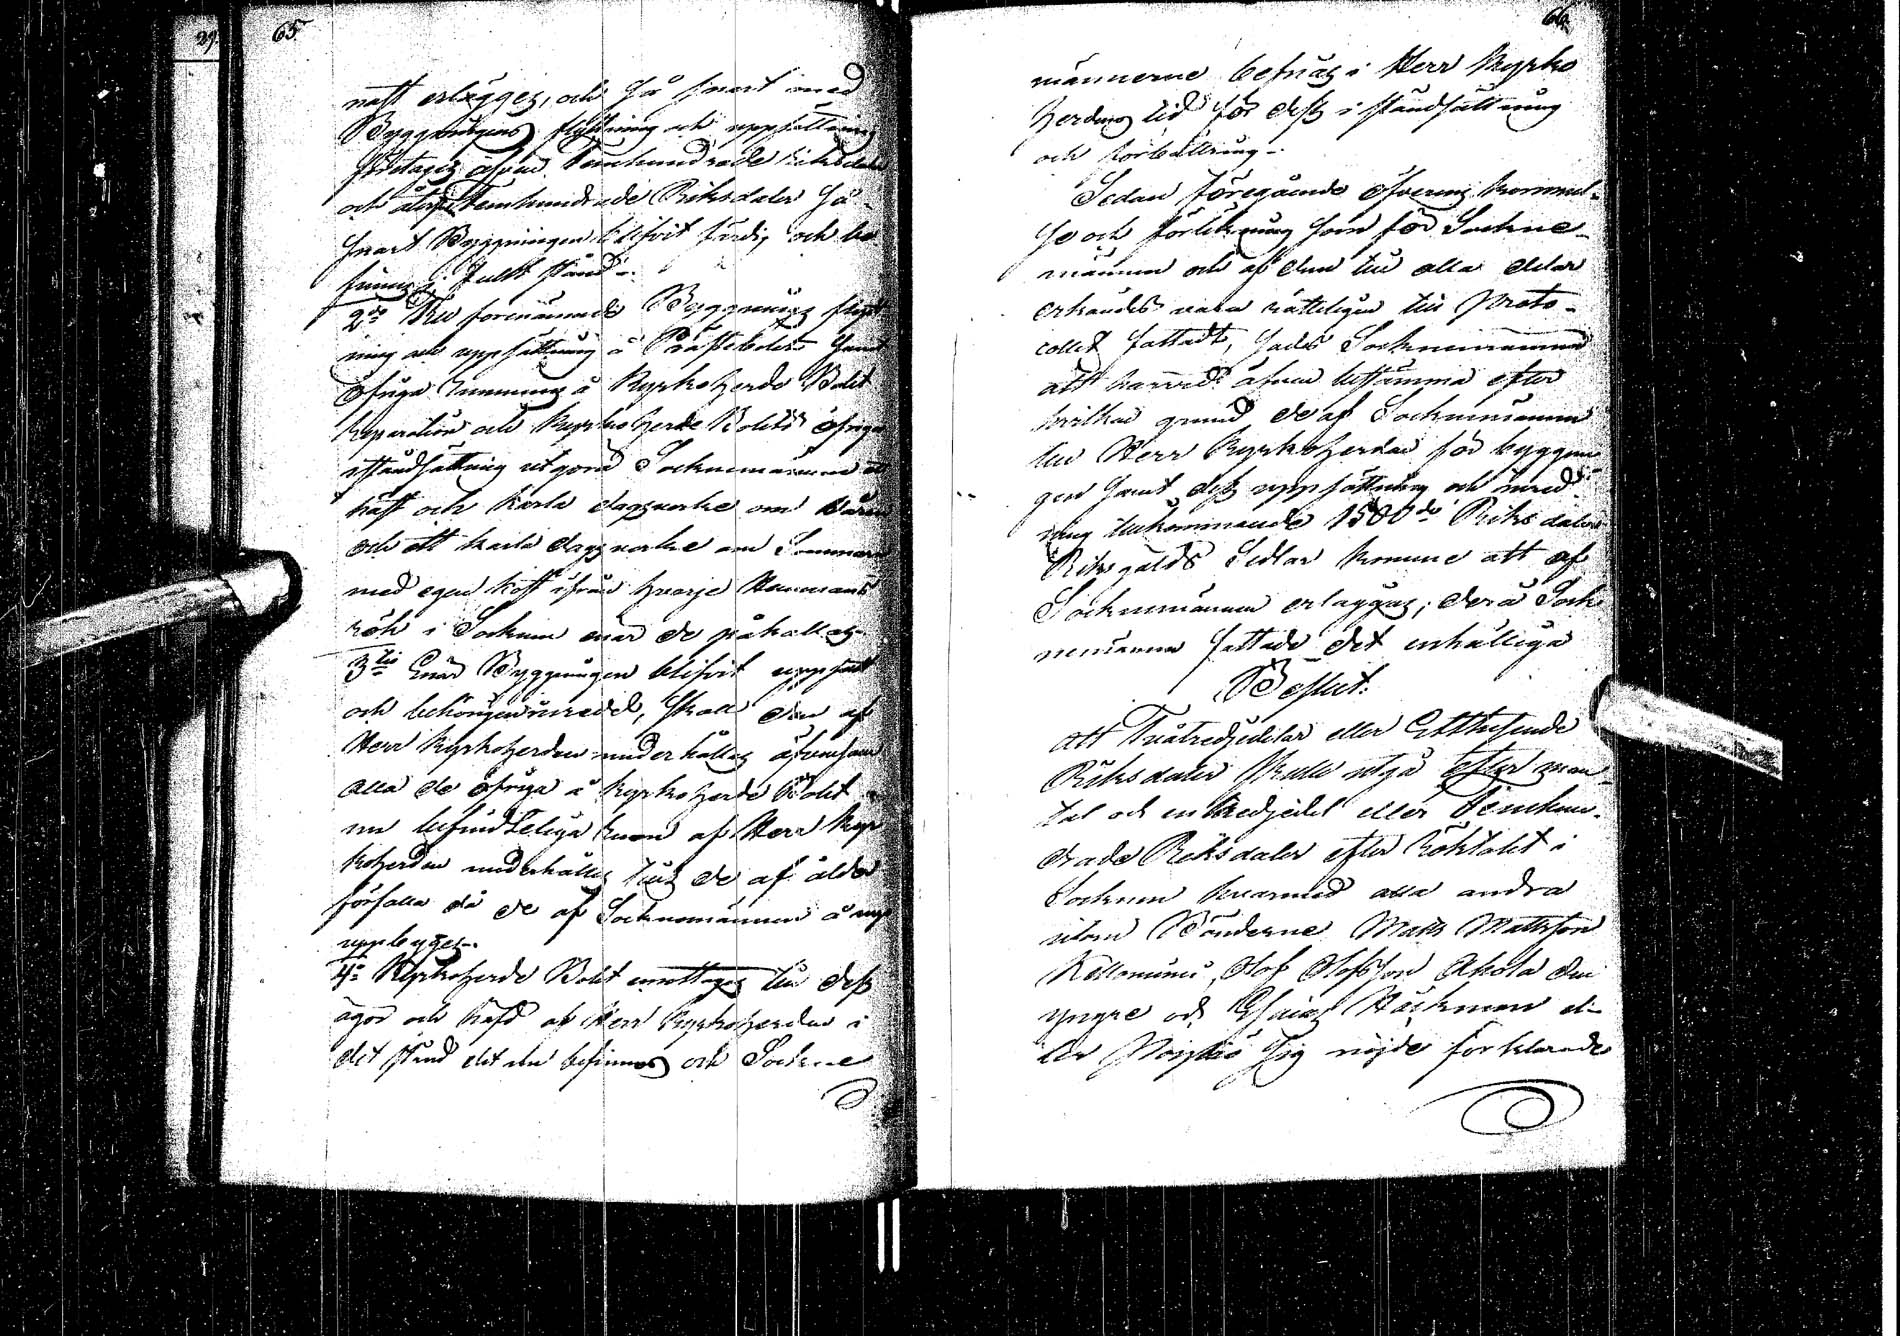 29.
65
näst erlägges, och så snart med
Byggningens flyttning och uppsättning
företages äfven Femhundrade Riksdaler
och återst. Femhundrade Riksdaler så
snart Byggningen blifvit färdig och be
finnes i fullt stånd.
2do Till förenämnde Byggnings flytt
ning och uppsättning å Prästebolet samt
öfriga rummens å Kyrkoherde Bolet
Reparation och Kyrkoherde Bolets öfriga
iståndsättning utgöra Sockenmännen en
häst och karla dagsverke om Våren
och ett karla dagsverke om Sommaren
med egen kost ifrån hvarje Hemmans
rök i Socknen när de påkallas.
3tio Enär Byggningen blifvit uppsatt
och behörigen inredd, skall den af
Herr Kyrkoherden underhållas äfvensom
alla de öfriga å Kyrkoherde Bolet
nu befindteliga husen af Herr Kyr
koherden underhållas tills de af ålder
förfalla då de af Socknemännen å nyo
uppbygges.
4o Kyrkoherde Bolet emottages till dess
ägor och häfd af Herr Kyrkoherden i
det stånd det nu befinnes och Sockne
66.
männerne befrias i Herr Kyrko
herdens tid för dess iståndsättning
och förbättring.
Sedan föregående öfverens kommel-
se och förlikning som för Sockne-
männen och af dem till alla delar
erkändes vara rätteligen till Proto-
collet fattadt, hade Sockenmännen
att härvid äfven bestämma efter
hvilken grund de af Sockenmännen
till Herr Kyrkoherden för byggnin
gen samt dess uppsättning och inred
ning tillkommande 1500de Riksdaler
Riksgälds Sedlar komme att af
Sockenmännen erläggas; derå Sock
nemännen fattade det enhälliga
Beslut:
att Tvåtredjedelar eller Ettusende
Riksdaler skulle utgå efter man-
tal och en tredjedel eller Femhun-
drade Riksdaler efter Röktalet i
Socknen hvarmed alla andra
utom Bönderne Mats Mattsson
Kellomäki, Olof Olofsson Akola den
yngre och Esaias Häckman el-
ler sig nöjde förklarade